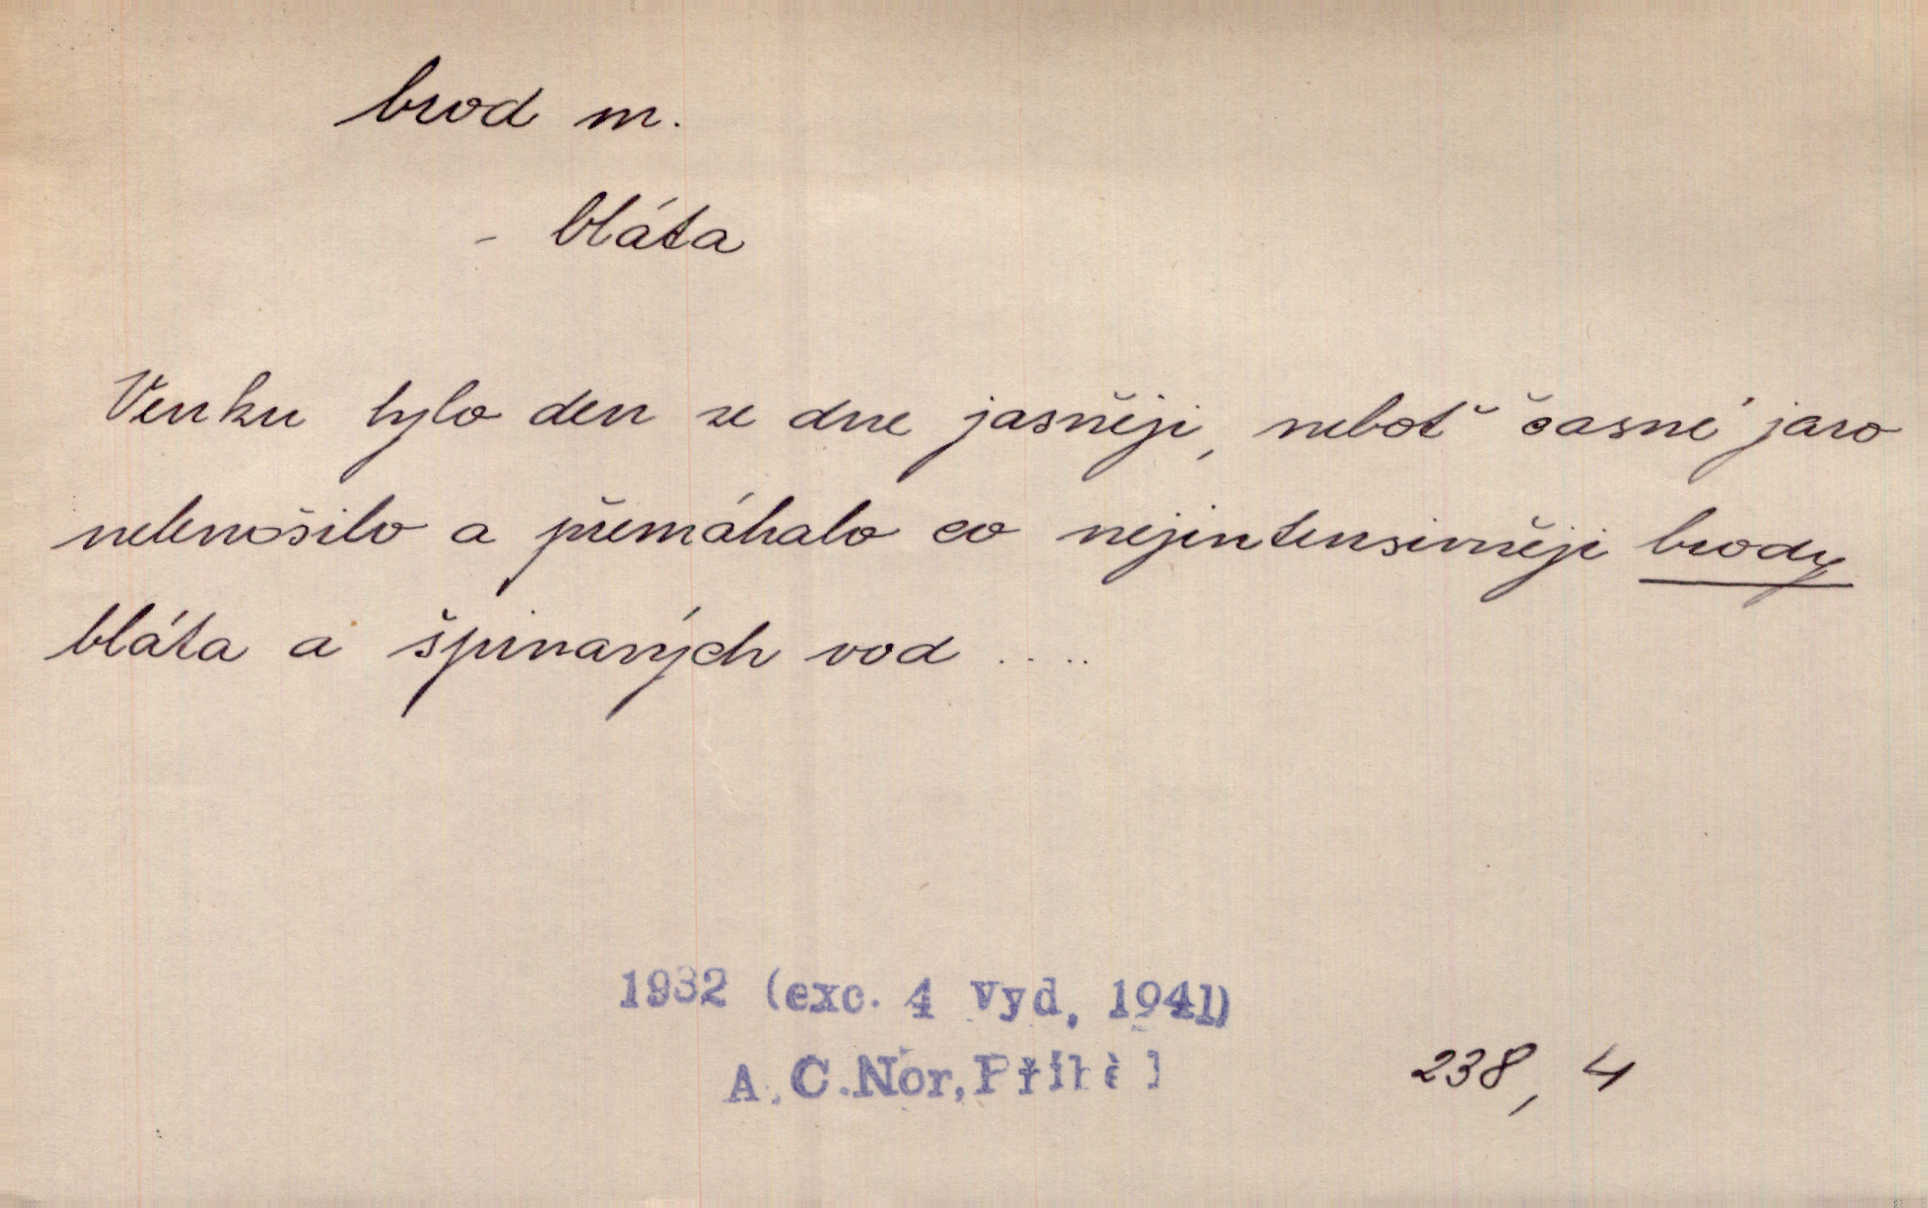 brod m.
- bláta
Venku bylo den ze dne jasněji, neboť časné jaro
nelenošilo a přemáhalo co nejintensivněji brody
bláta a špinavých vod ....
1932 (exc. 4 vyd, 1941)
A.C.Nor,
238, 4